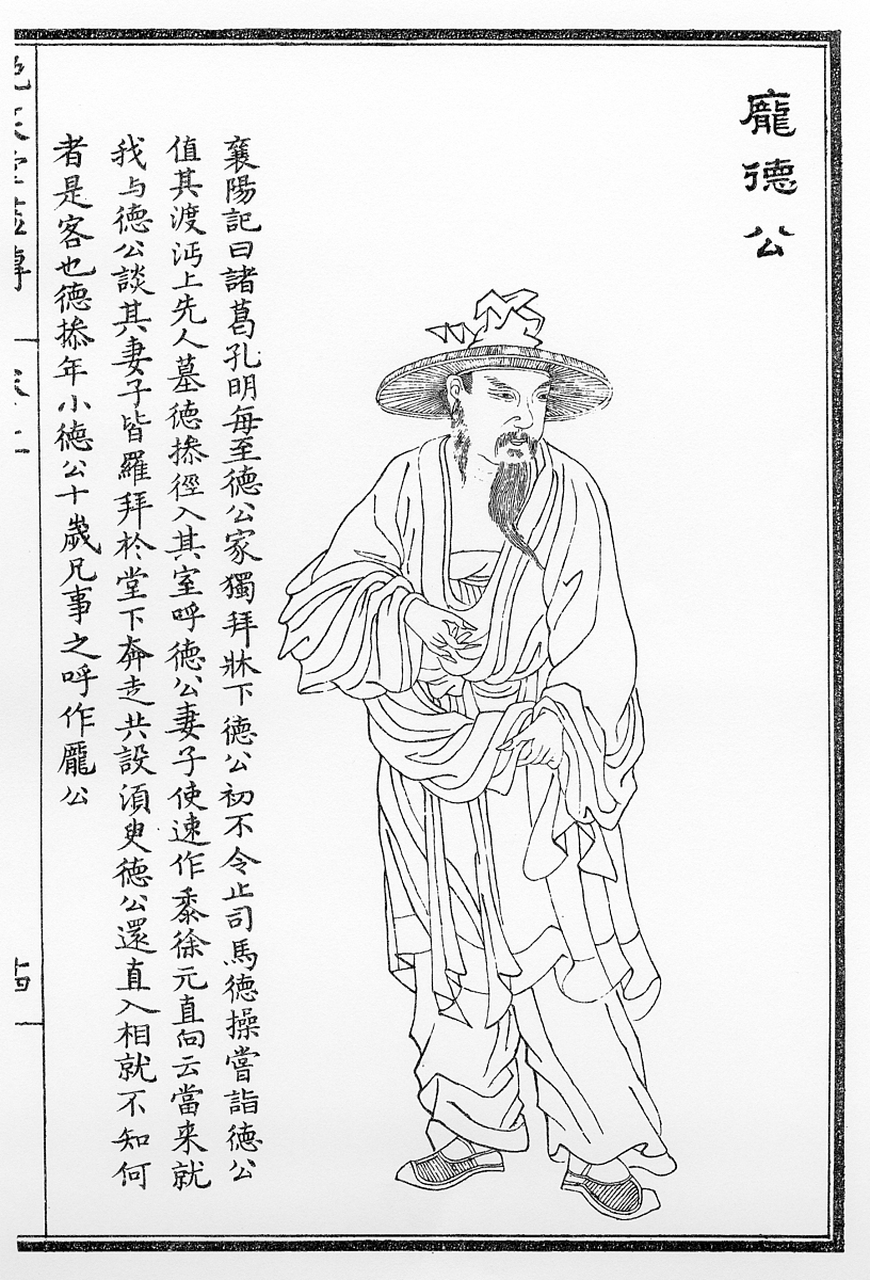 龐德公
襄陽記曰諸葛孔明每至德公家獨拜牀下德公初不令止司馬德操嘗詣德公
值其渡沔上先人墓德摻徑入其室呼德公妻子使速作黍徐元直向云當来就
我与德公談其妻子皆羅拜於堂下奔走共設湏臾德公還直入相就不知何
者是客也德摻年小德公十歲凡事之呼作龐公